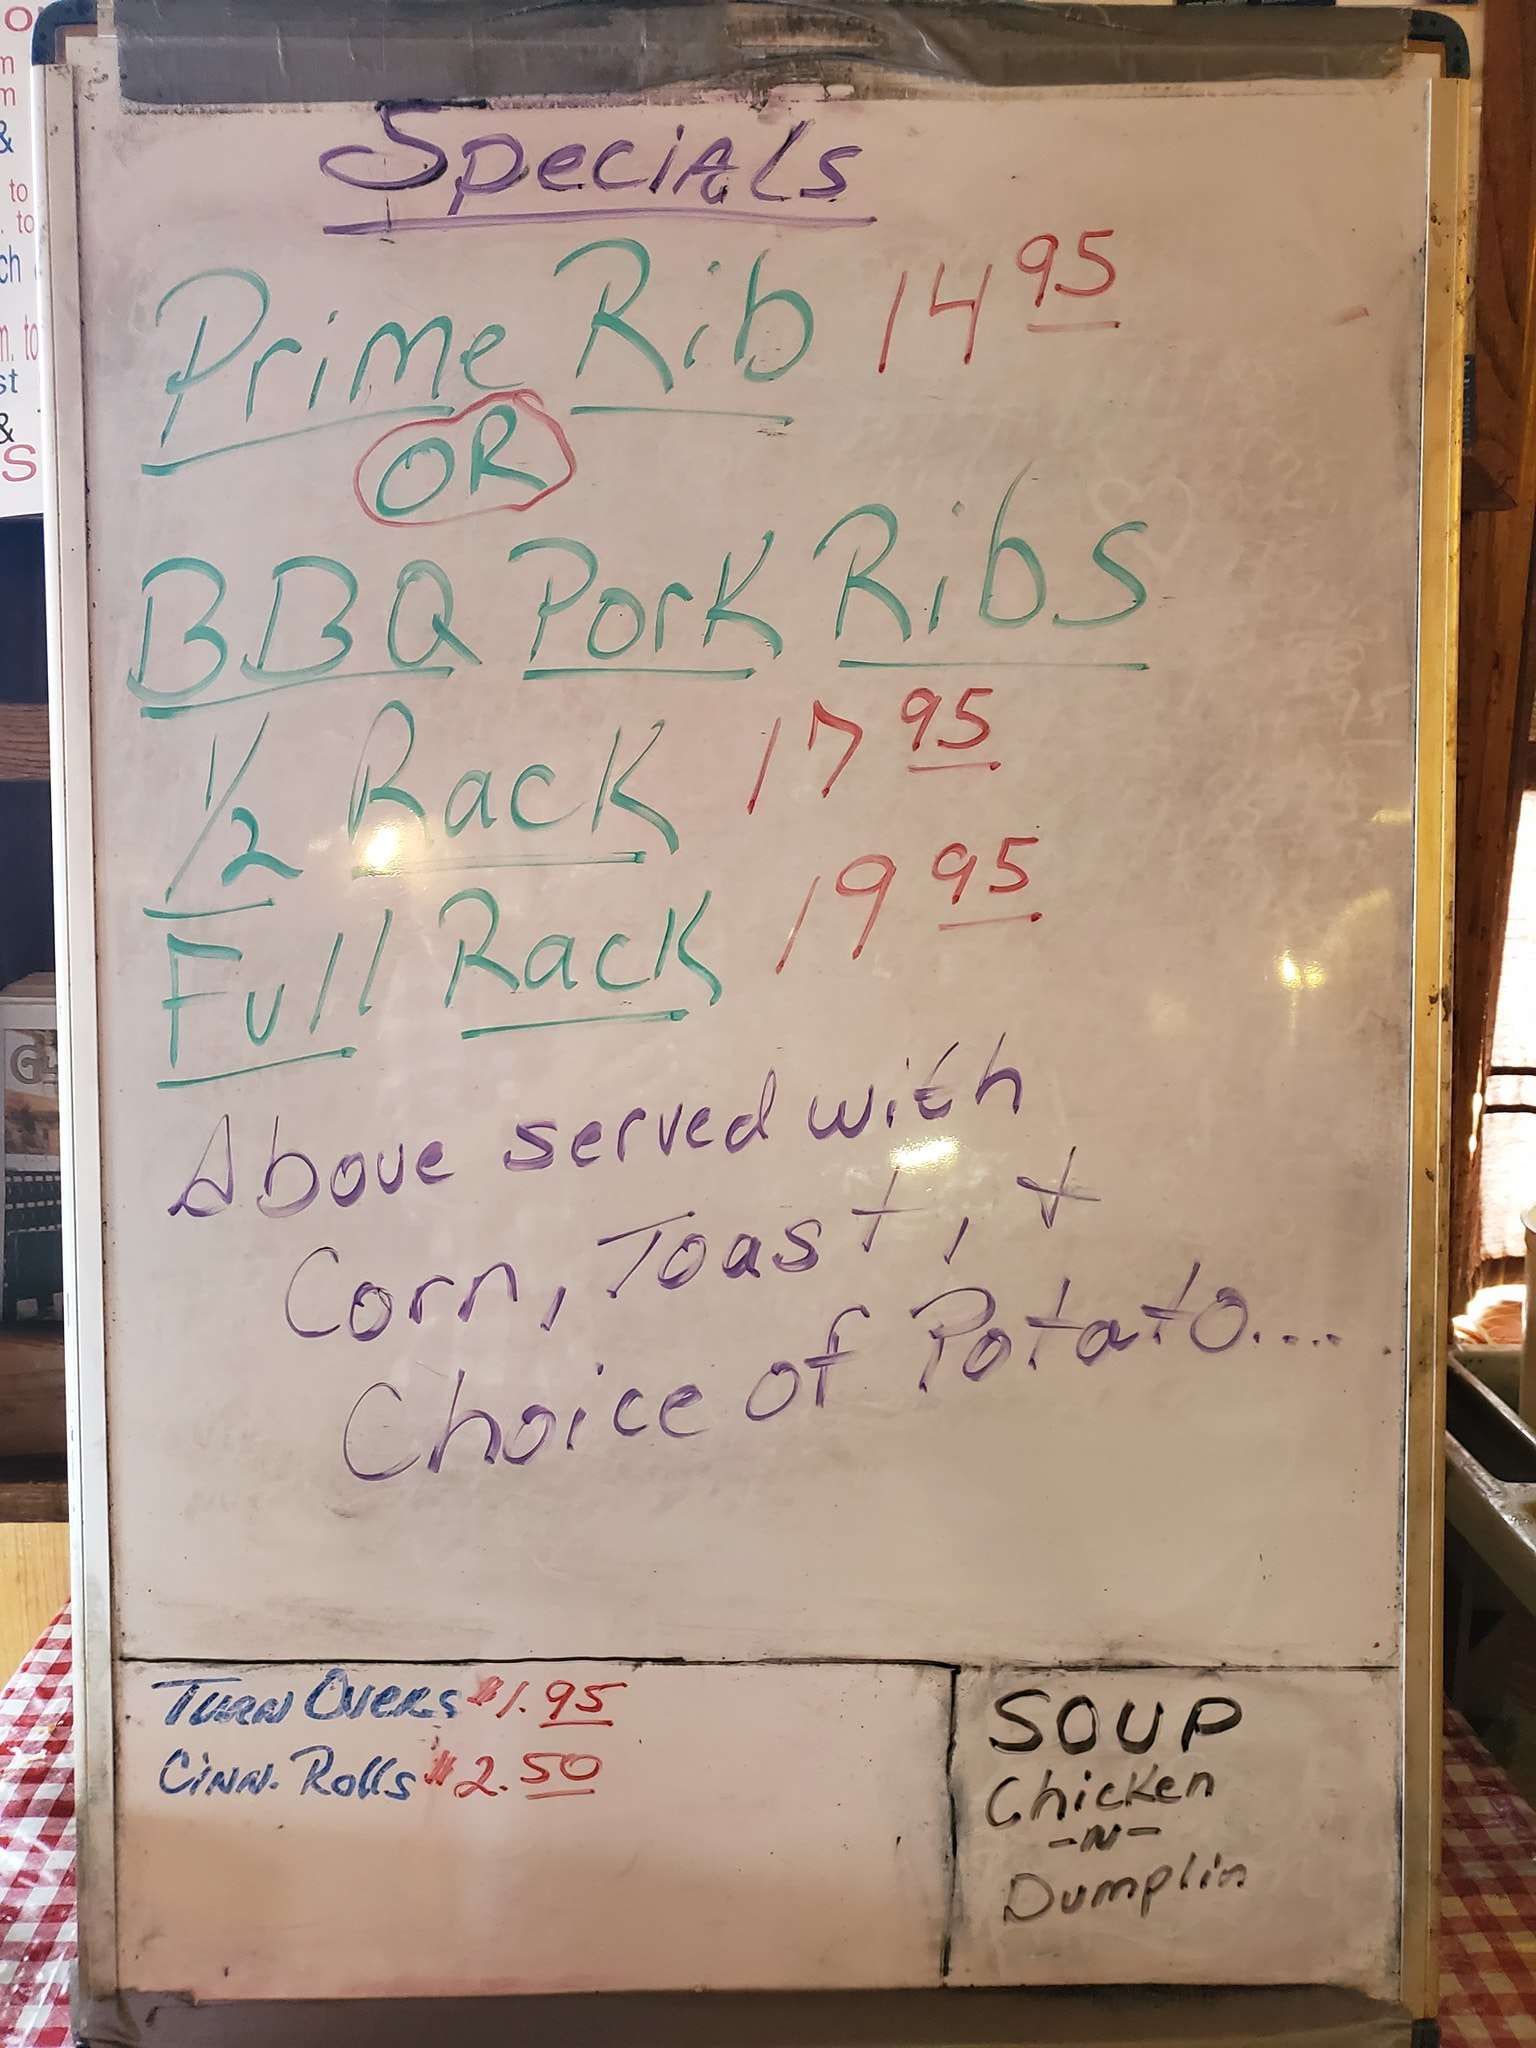 Specials
Prime Rib 14 95
OR
BBQ Pork Ribs
1/2 Rack 17 95
Full Rack 19 95
Above served with
Corn, Toast, +
Choice of Potato....
Turn Overs $1.95
Cinn. Rolls $2.50
SOUP
Chicken
-N-
Dumplin